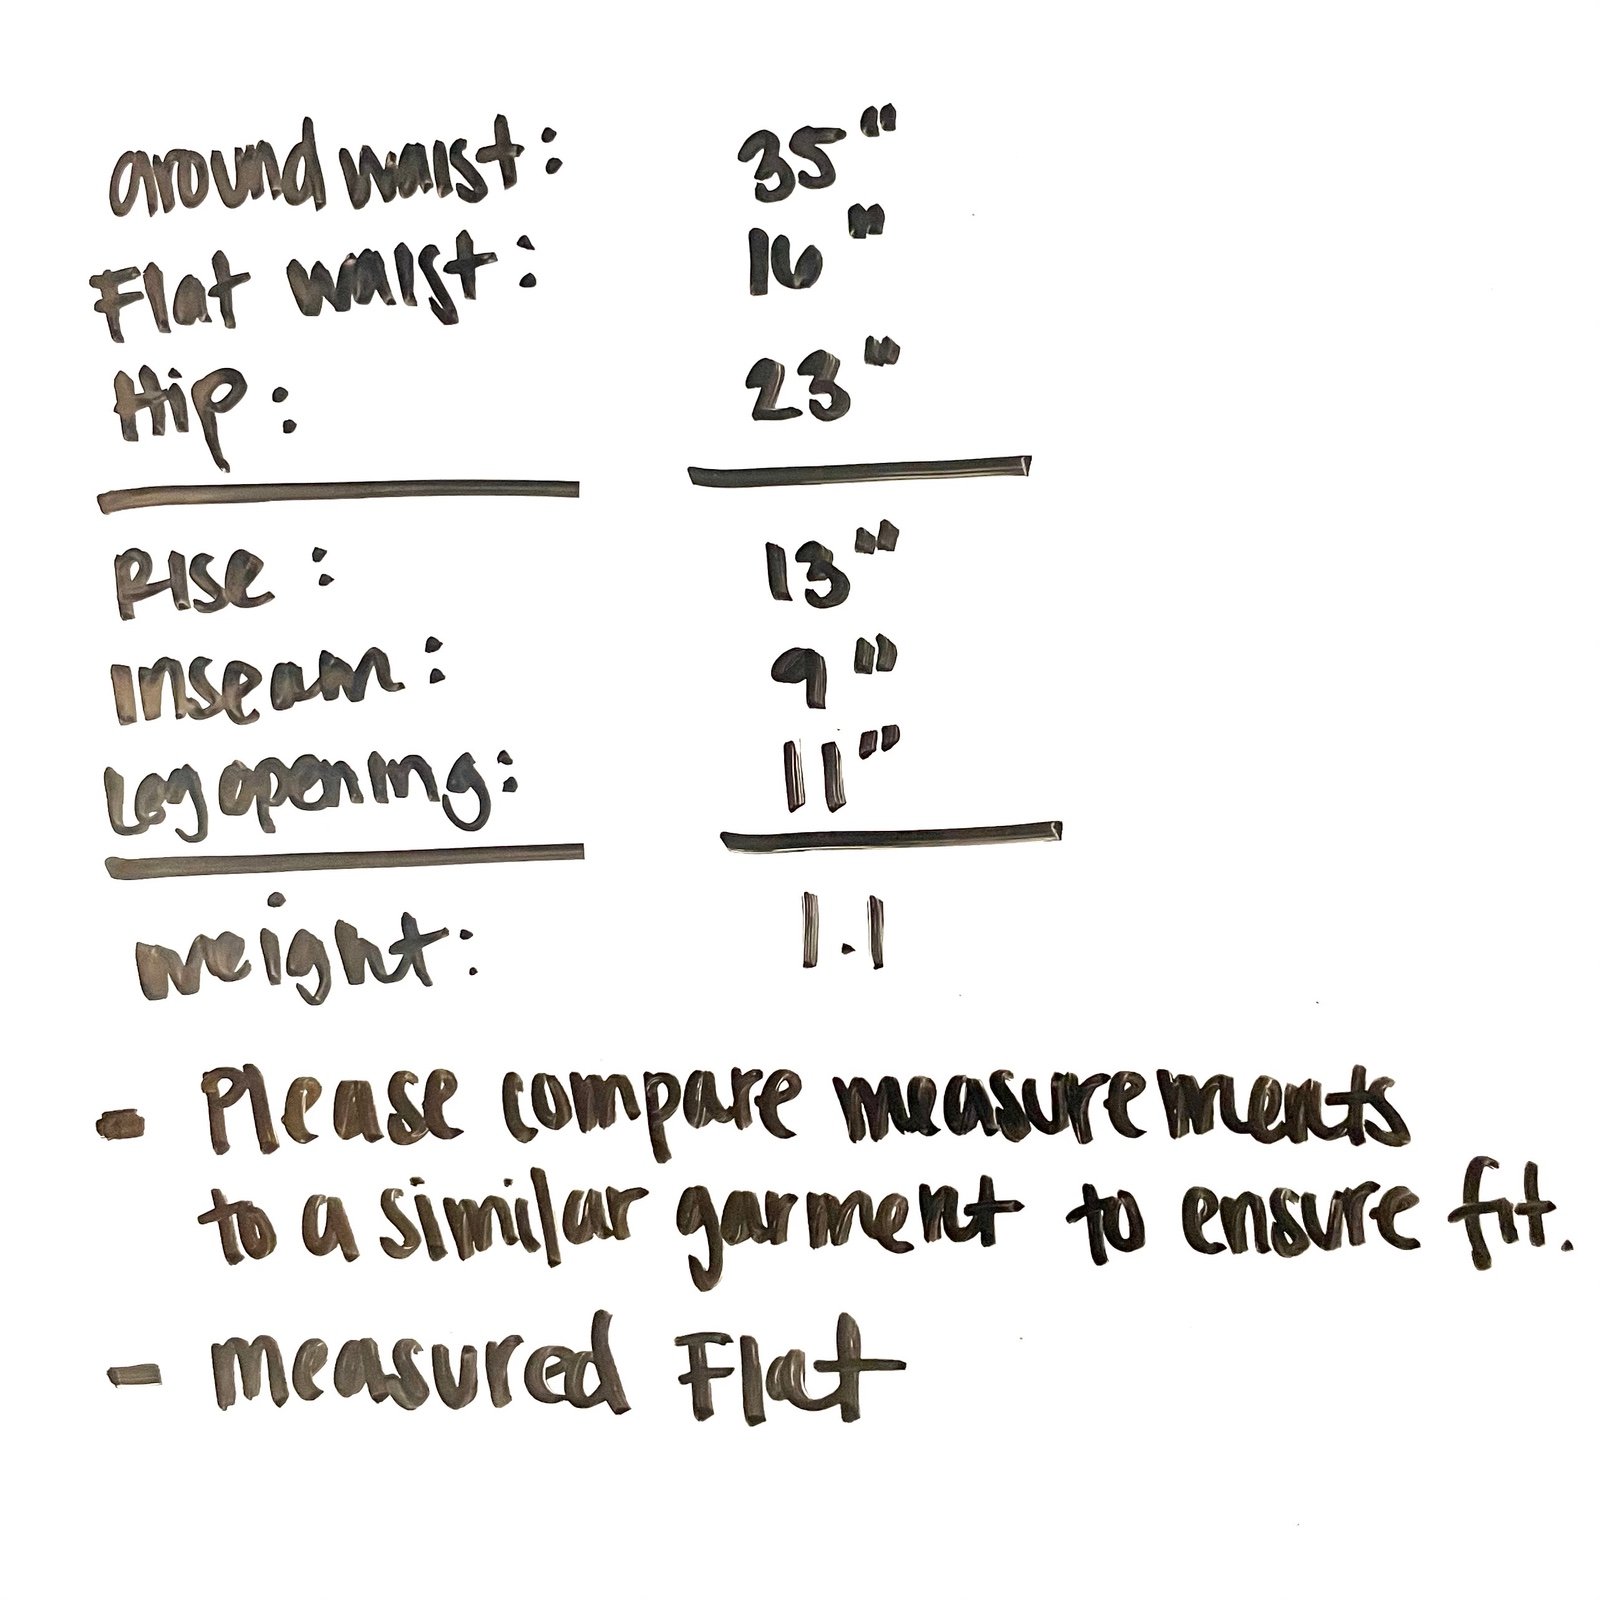 around waist: 35"
Flat waist: 16"
Hip: 23"
Rise: 13"
Inseam: 9"
Leg opening: 11"
weight: 1.1
- Please compare measurements
to a similar garment to ensure fit.
- measured Flat